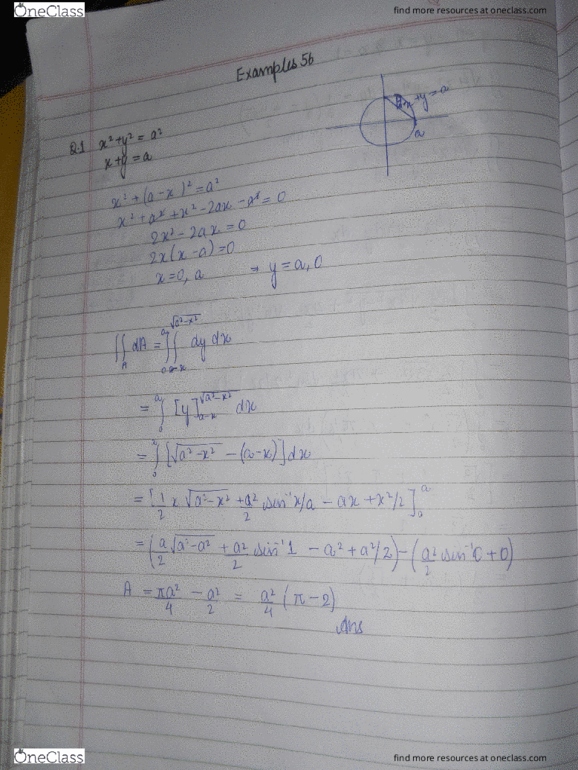 OneClass
find more resources at oneclass.com
Examples 5b
Q.1 x²+y² = a²
x+y = a
x+y = a
a
x² + (a-x)² = a²
x² + a² + x² - 2ax - a² = 0
2x² - 2ax = 0
2x(x-a) = 0
x = 0, a ⇒ y = a, 0
∬_A dA = ∫_0^a ∫_{a-x}^{√(a²-x²)} dy dx
= ∫_0^a [y]_{a-x}^{√(a²-x²)} dx
= ∫_0^a [√(a²-x²) - (a-x)] dx
= [1/2 x √(a²-x²) + a²/2 sin⁻¹ x/a - ax + x²/2]_0^a
= (a/2 √(a²-a²) + a²/2 sin⁻¹ 1 - a² + a²/2) - (a²/2 sin⁻¹ 0 + 0)
A = πa²/4 - a²/2 = a²/4 (π - 2)
Ans
OneClass
find more resources at oneclass.com